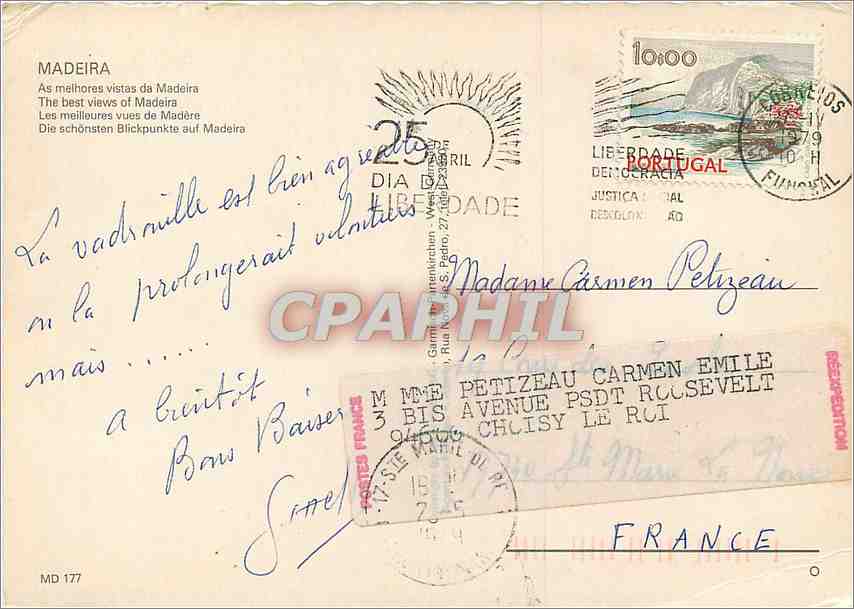 MADEIRA
As melhores vistas da Madeira
The best views of Madeira
Les meilleures vues de Madère
Die schönsten Blickpunkte auf Madeira
25 DE ABRIL
DIA DA
LIBERDADE
10$00
PORTUGAL
LIBERDADE
DEMOCRACIA
JUSTIÇA SOCIAL
CORREIOS
IV
1979
10 H
FUNCHAL
La vadrouille est bien agreable
on la prolongerait volontiers
mais ......
a bientôt
Bons Baisers
Garmisch-Partenkirchen - West-Germany
Rua Nova de S. Pedro, 27
CPAPHIL
Madame Carmen Petizeau
POSTES FRANCE
M MME PETIZEAU CARMEN EMILE
3 BIS AVENUE PSDT ROOSEVELT
94600 CHOISY LE ROI
RÉEXPÉDITION
17 Ste Marie
17-STE MARIE DE RE
18 H
FRANCE
MD 177